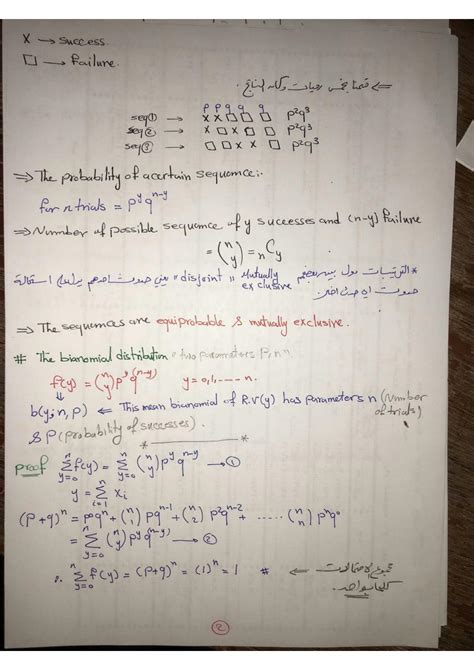 X → Success.
□ → Failure.
p p q q q
seq① → X X □ □ □ p²q³
seq② → X □ X □ □ p²q³
seq③ → □ □ X X □ p²q³
⇒ The probability of acertain sequence:
for n trials = p^y q^(n-y)
⇒ Number of possible sequence of y successes and (n-y) failure
= (n y) = nCy
"disjoint" Mutually exclusive
⇒ The sequences are equiprobable & mutually exclusive.
# The bianomial distribution "two parameters P, n"
f(y) = (n y) p^y q^(n-y) y=0,1,---- n.
b(y; n, p) ⇐ This mean bianomial of R.V(y) has parameters n (number of trials)
& P (probability of successes).
proof Σ_{y=0}^{n} f(y) = Σ_{y=0}^{n} (n y) p^y q^(n-y) → ①
y = Σ_{i=1}^{n} xi
(p+q)^n = p⁰q^n + (n 1) p q^(n-1) + (n 2) p² q^(n-2) + ..... (n n) p^n q⁰
= Σ_{y=0}^{n} (n y) p^y q^(n-y) → ②
∴ Σ_{y=0}^{n} f(y) = (p+q)^n = (1)^n = 1 #
⇐ مجموع الاحتمالات
②